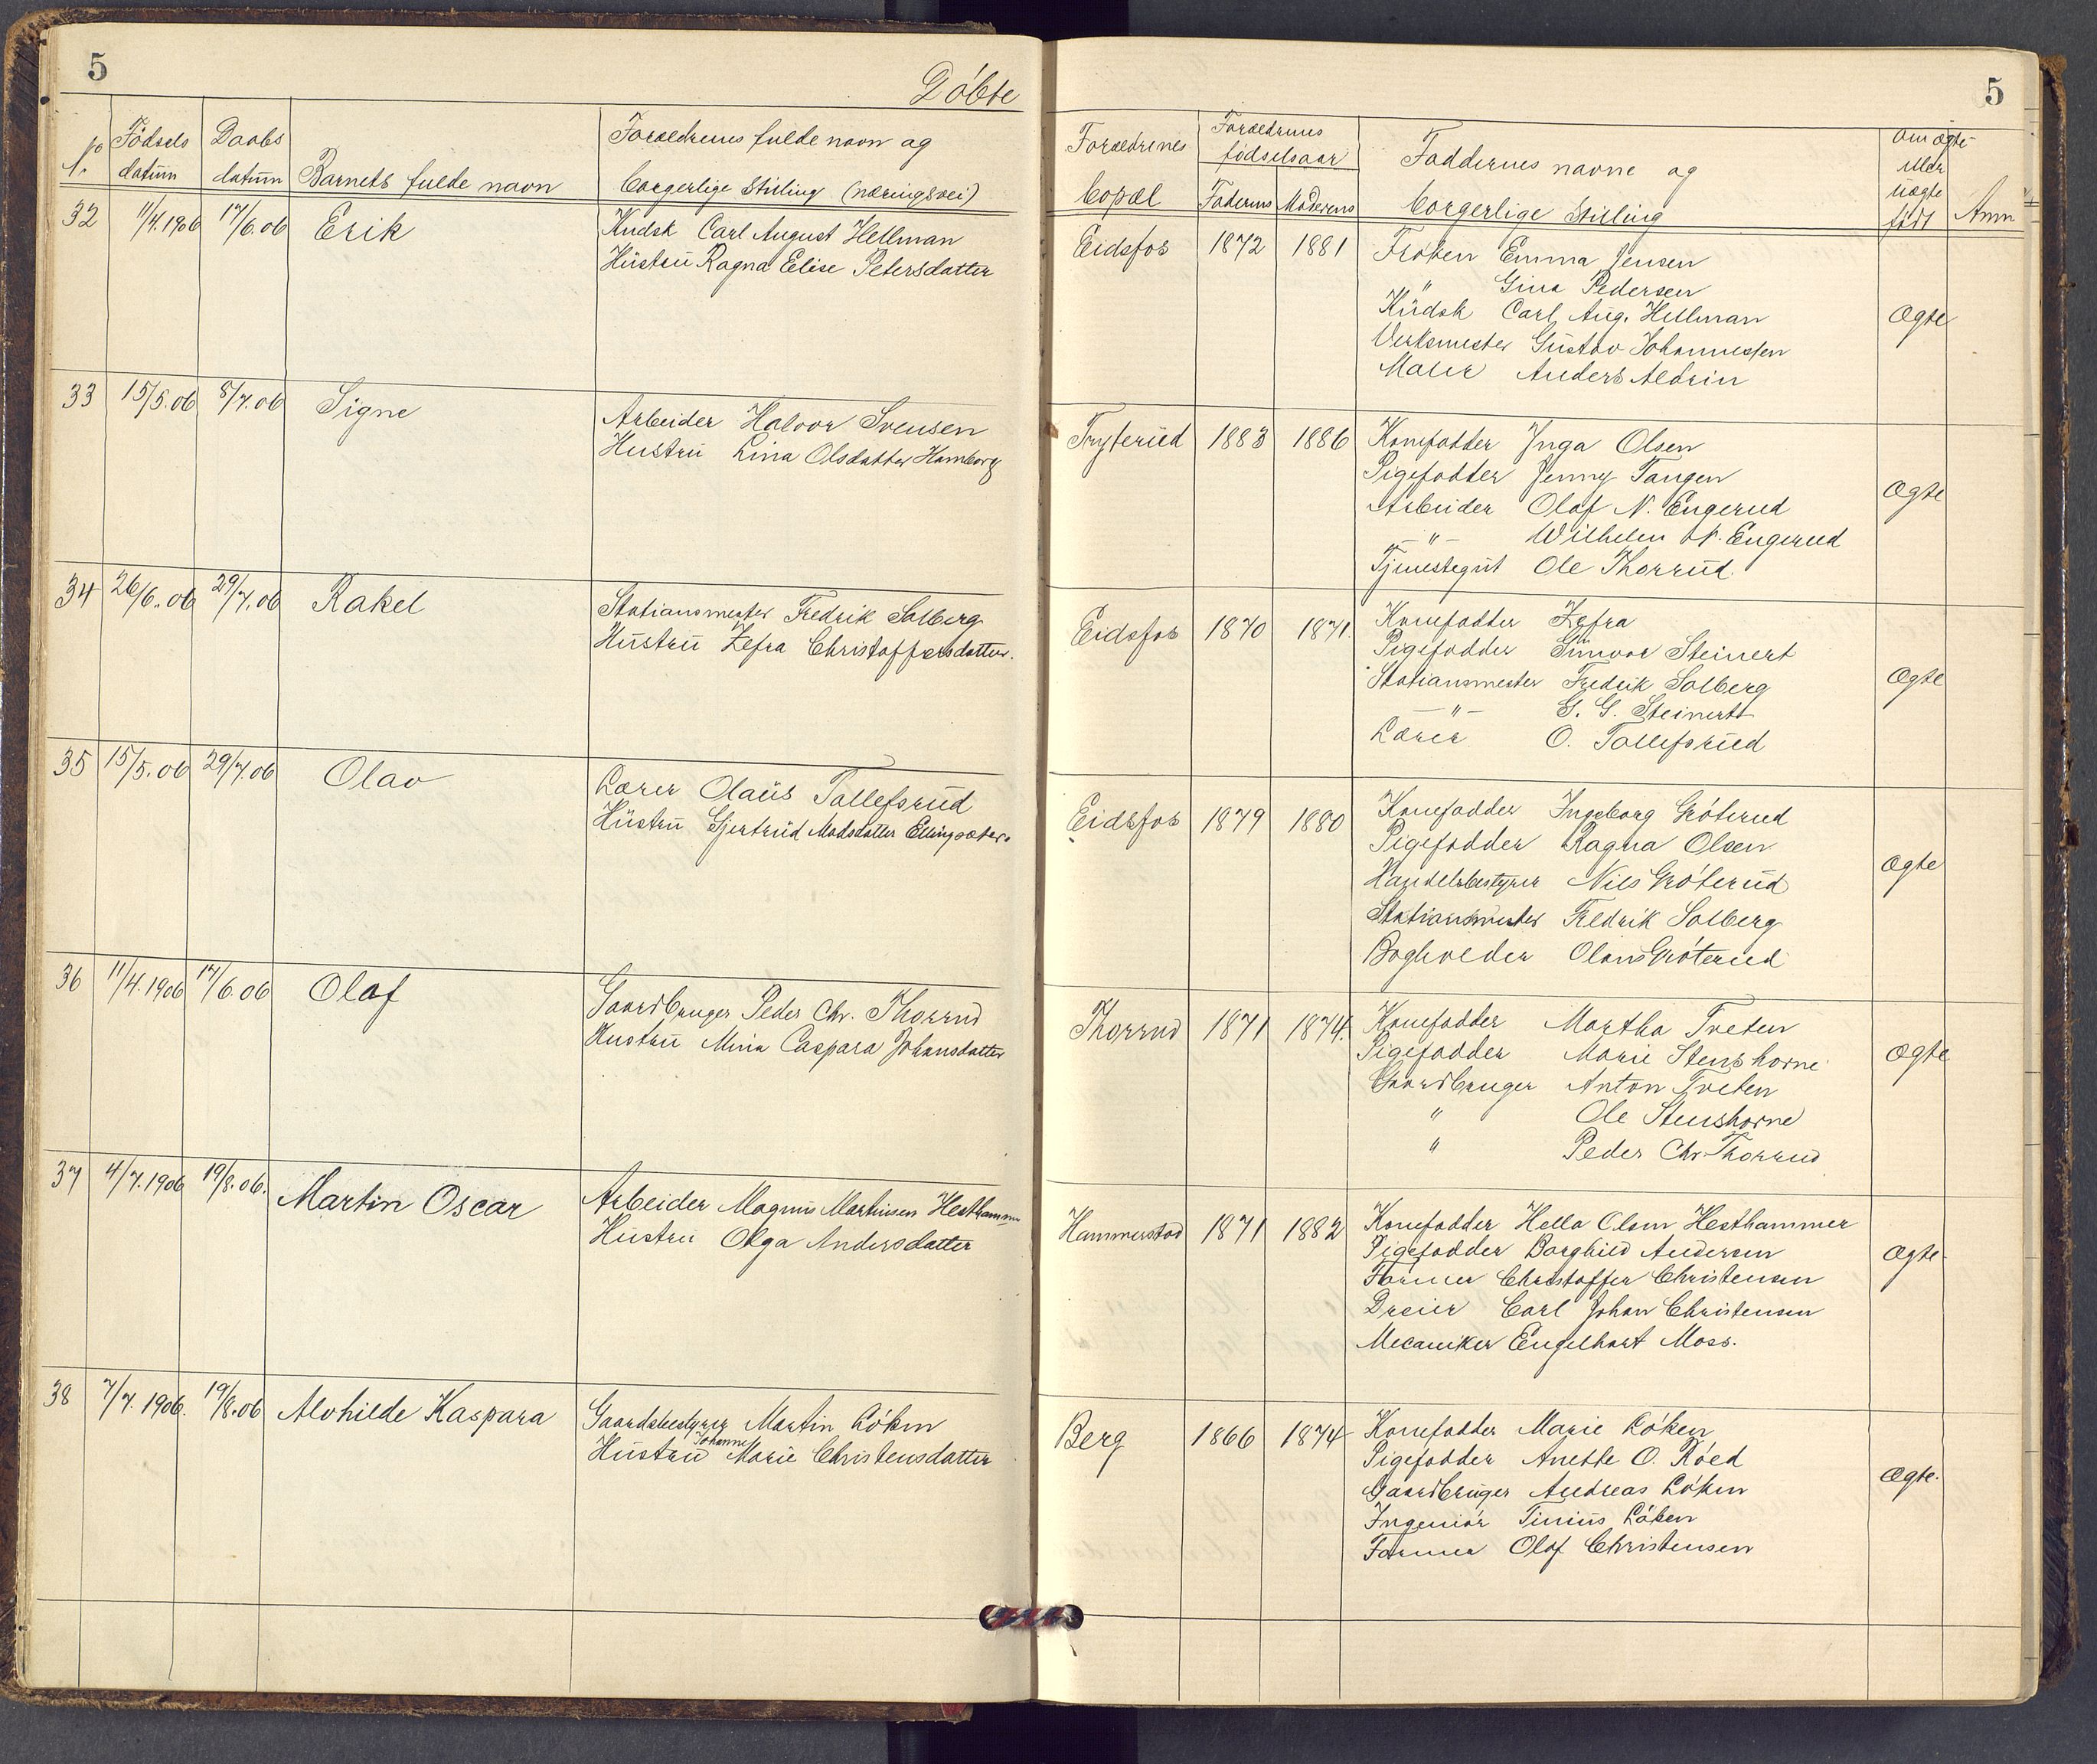 5
Döbte
No
Födsels
datum
Daabs
datum
Barnets fulde navn
Foraeldrenes fulde navn og
borgerlige Stilling (næringsvei)
32 11/4.1906 17/6.06 Erik
Kudsk Carl August Hellman
Hüstrü Ragna Elise Petersdatter
33 15/5.06 8/7.06 Signe
Arbeider Halvor Svensen
Hustru Lina Olsdatter Hamborg
34 26/6.06 29/7.06 Rakel
Stationsmester Fredrik Solberg
Hüstrü Zefra Christoffersdatter.
35 15/5.06 29/7.06 Olav
Lærer Olaüs Tollefsrüd
Hüstrü Gjertrüd Madsdatter Ellingsæter.
36 11/4.1906 17/6.06 Olaf
Gaardbruger Peder Chr. Thorrud
Hustrü Mina Caspara Johansdatter
37 4/7.1906 19/8.06. Martin Oscar
Arbeider Magnus Martinsen Hesthammer
Hüstru Olga Andersdatter
38 7/7.1906. 19/8.06 Alvhilde Kaspara
Gaardsbestyrer Martin Löken
Johanne
Hüstrü Marie Christensdatter
5
Foraeldrenes
bopæl
Foraeldrenes
födselsaar
Faderens Moderens
Faddernes navne og
borgerlige Stilling
Om ægte
eller
uægte
födt
Anm
Eidsfos 1872 1881 Fröken Emma Jensen
" Gina Pedersen
Küdsk Carl Aug. Hellman
Verksmester Gustav Johannesen
Maler Anders Aldrin
Ægte
Tryterüd 1883 1886 Konefadder Inga Olsen
Pigefadder Jenny Tangen
Arbeider Olaf N. Engerud
—"— Wilhelm N. Engerud
Tjenestegüt Ole Thorrüd.
Ægte
Eidsfos 1870 1871 Konefadder Zefra
Pigefadder Günvor Steinert
Stationsmester Fredrik Solberg
—"— G. G. Steinert
Lærer O. Tollefsrüd
Ægte
Eidsfos 1879 1880 Konefadder Ingeborg Gröterud
Pigefadder Ragna Olsen
Handelsbestyrer Nils Gröterüd
Stationsmester Fredrik Solberg
Bogholder Olans Gröterud
Ægte
Thorrud 1871 1874. Konefadder Martha Tveten
Pigefadder Marie Stenshorne
Gaardbruger Anton Tveten
" Ole Stenshorne
" Peder Chr. Thorrud
Ægte
Hammerstad 1871 1882 Konefadder Hella Olsen Hesthammer
Pigefadder Borghild Andersen
Former Christoffer Christensen
Dreier Carl Johan Christensen
Mecaniker Engelhart Moss.
Ægte
Berg 1866 1874 Konefadder Marie Löken
Pigefadder Anette O. Röed
Gaardbrüger Andreas Löken
Ingeniör Tinius Löken
Former Olaf Christensen
Ægte.